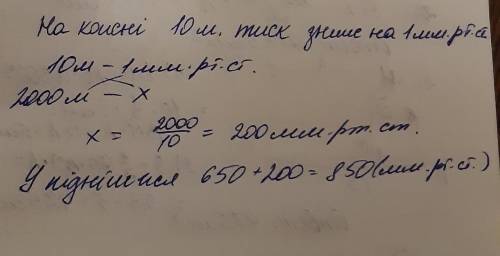 На кожні 10 м. тиск зниже на 1 мм.рт.ст
10 м – 1 мм.рт.ст.
2000 м – x
x = 2000/10 = 200 мм.рт.ст.
У підніжжя 650 + 200 = 850 (мм.рт.ст.)